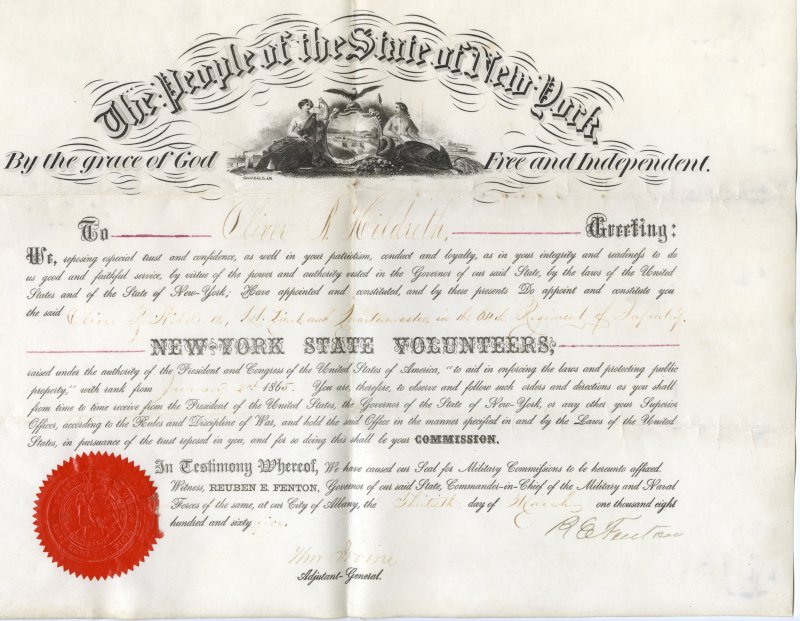 The People of the State of New-York
By the grace of God Free and Independent.
To Oliver Hildreth, Greeting:
We, reposing especial trust and confidence, as well in your patriotism, conduct and loyalty, as in your integrity and readiness to do
us good and faithful service, by virtue of the power and authority vested in the Governor of our said State, by the laws of the United
States and of the State of New-York; Have appointed and constituted, and by these presents Do appoint and constitute you
the said Oliver Hildreth, 1st Lieut. and Quartermaster, in the Regiment of Infantry,
NEW-YORK STATE VOLUNTEERS,
raised under the authority of the President and Congress of the United States of America, "to aid in enforcing the laws and protecting public
property," with rank from January 1865. You are, therefore, to observe and follow such orders and directions as you shall
from time to time receive from the President of the United States, the Governor of the State of New-York, or any other your Superior
Officer, according to the Rules and Discipline of War, and hold the said Office in the manner specified in and by the Laws of the United
States, in pursuance of the trust reposed in you, and for so doing this shall be your COMMISSION.
In Testimony Whereof, We have caused our Seal for Military Commissions to be hereunto affixed.
Witness, REUBEN E. FENTON, Governor of our said State, Commander-in-Chief of the Military and Naval
Forces of the same, at our City of Albany, the Thirtieth day of March one thousand eight
hundred and sixty five.
R E Fenton
Wm Irvine
Adjutant-General.